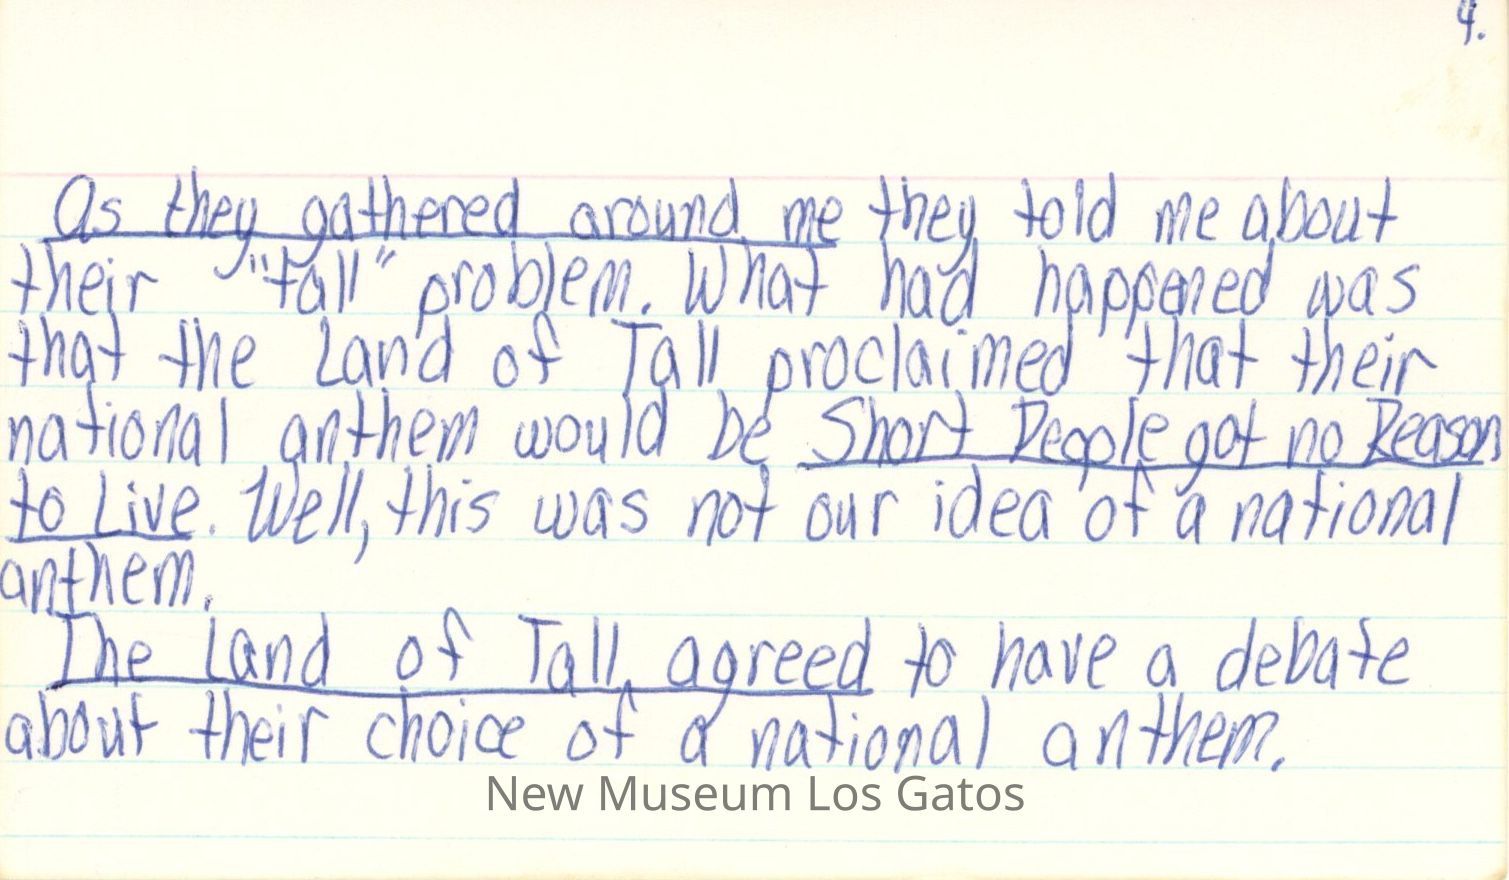 4.
As they gathered around me they told me about
their "tall" problem. What had happened was
that the Land of Tall proclaimed that their
national anthem would be Short People got no Reason
to Live. Well, this was not our idea of a national
anthem.
The Land of Tall agreed to have a debate
about their choice of a national anthem.
New Museum Los Gatos